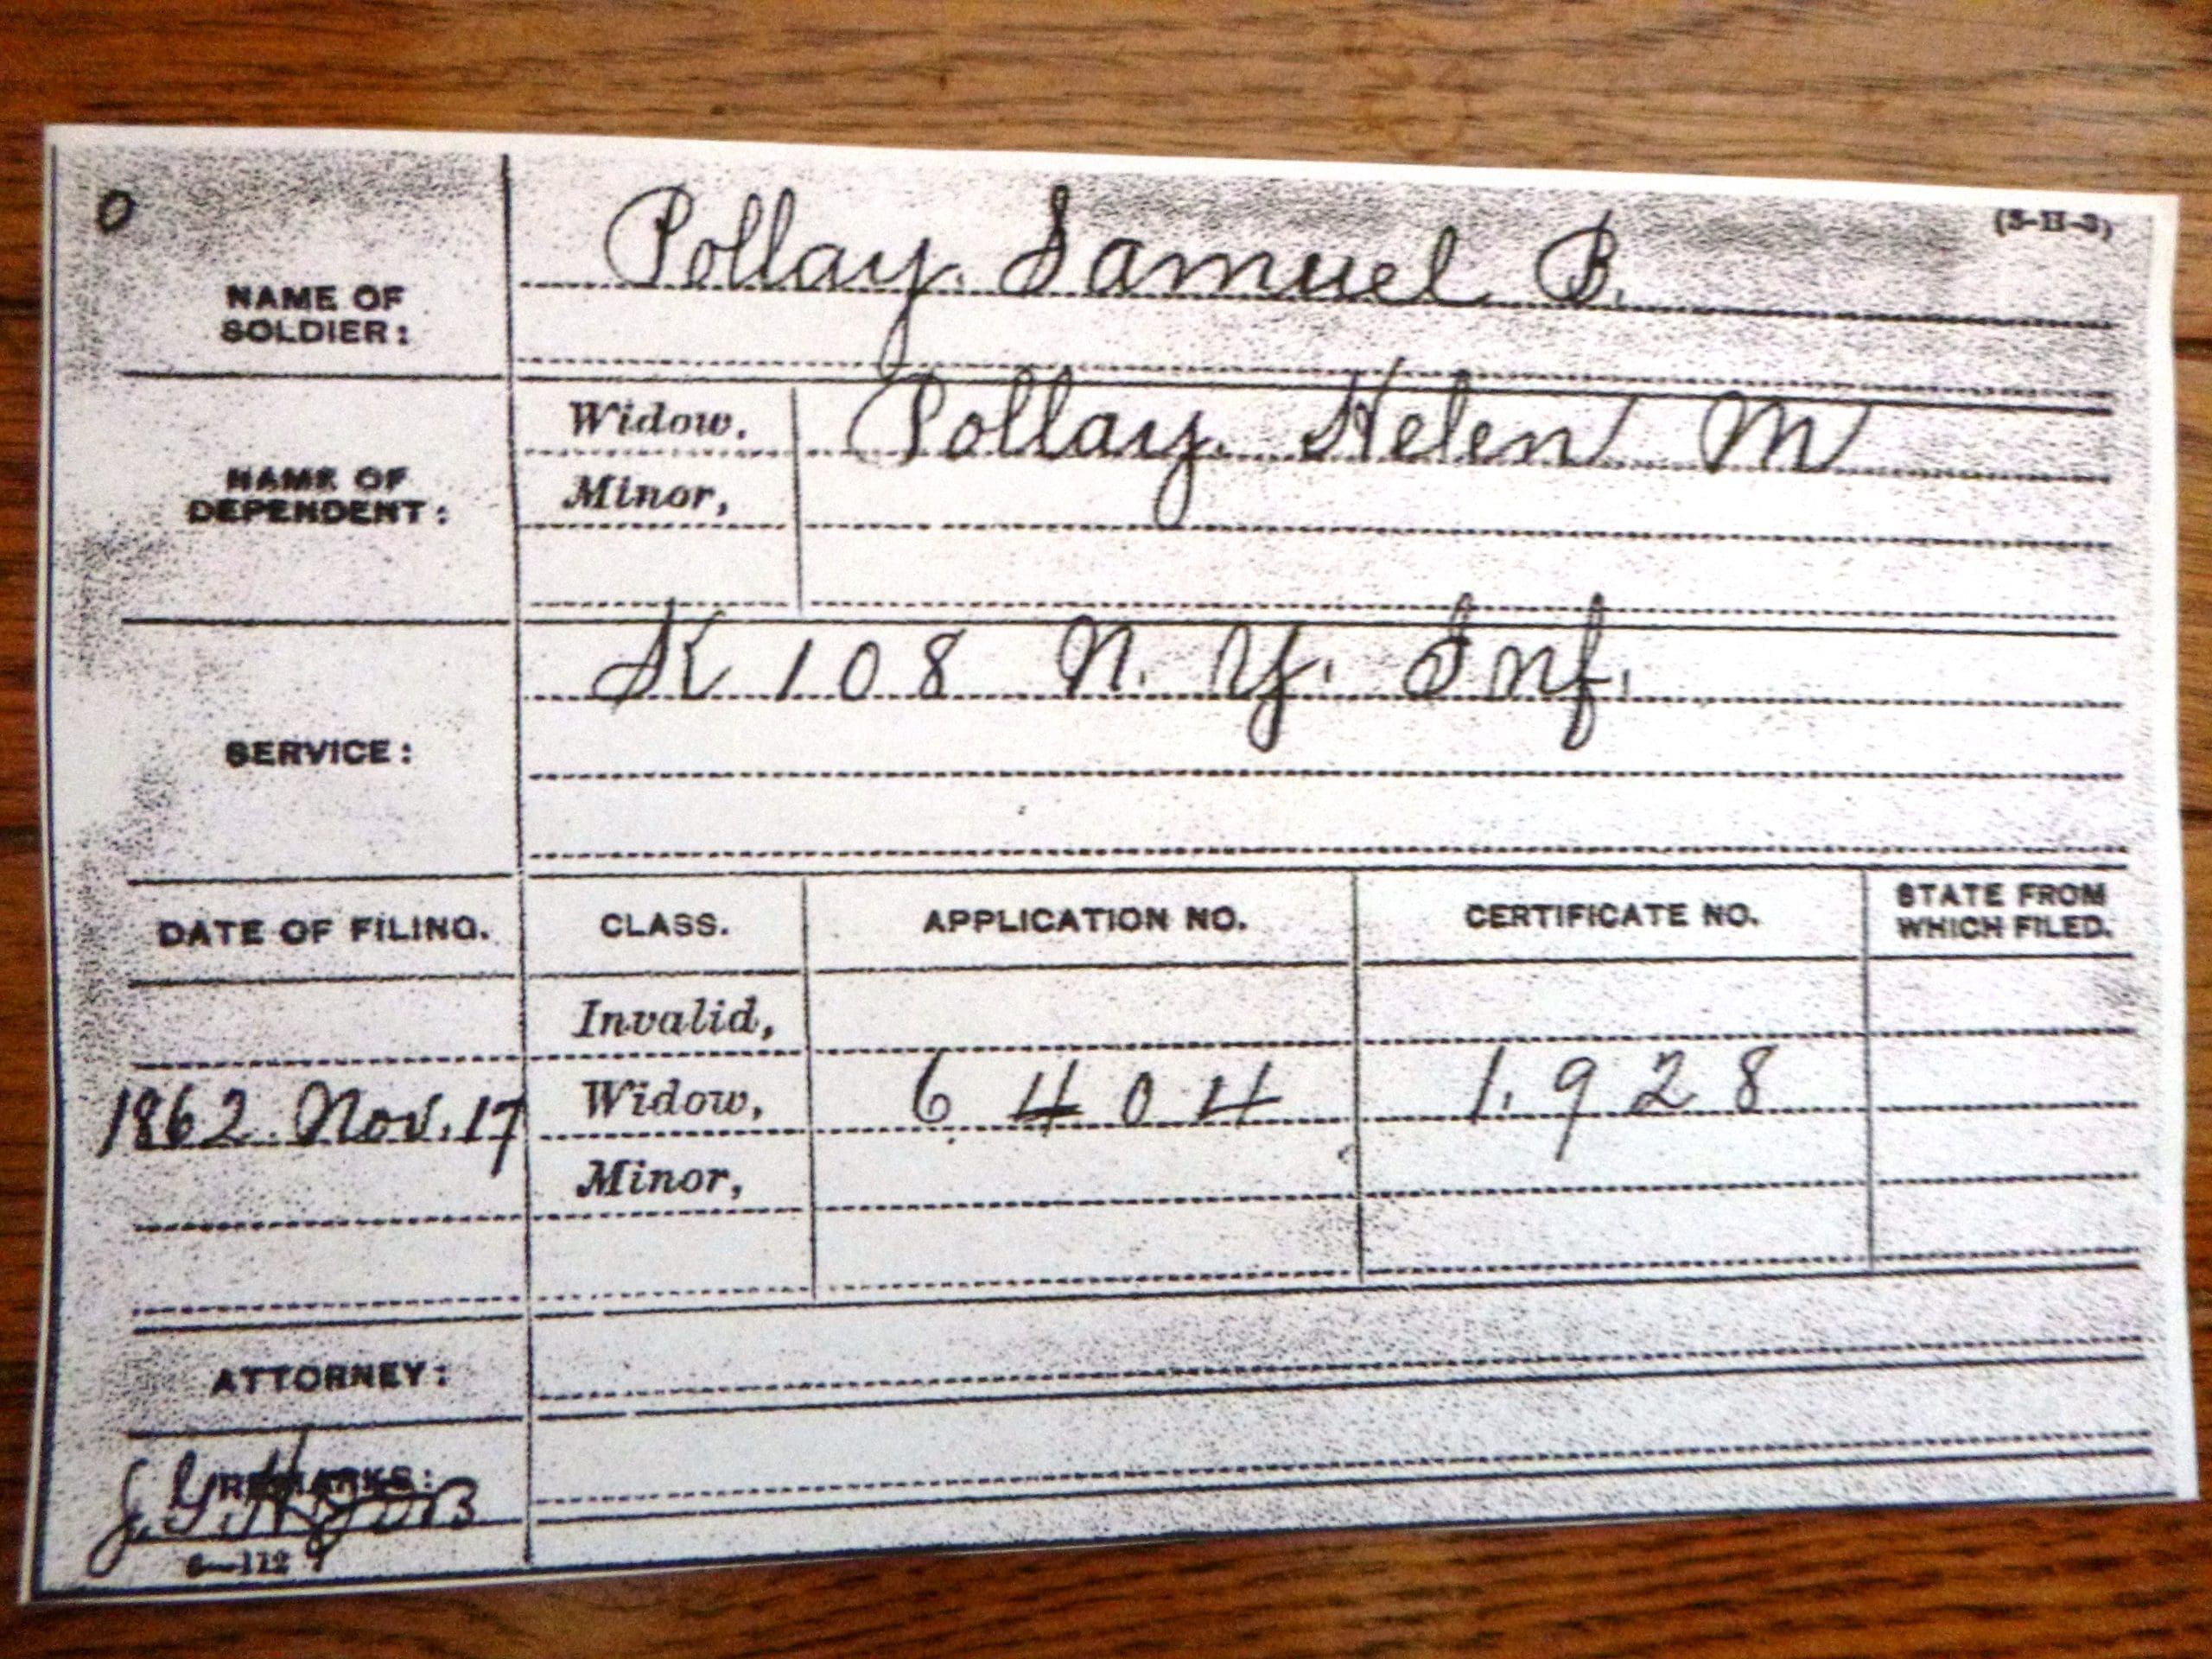 0
Pollay. Samuel B.
(3-11-3)
NAME OF
SOLDIER:
Widow.
Pollay. Helen M
NAME OF
DEPENDENT:
Minor,
K 108 N. Y. Inf.
SERVICE:
DATE OF FILING.
CLASS.
APPLICATION NO.
CERTIFICATE NO.
STATE FROM
WHICH FILED.
Invalid,
1862. Nov. 17
Widow,
6404
1,928
Minor,
ATTORNEY:
REMARKS:
6—112